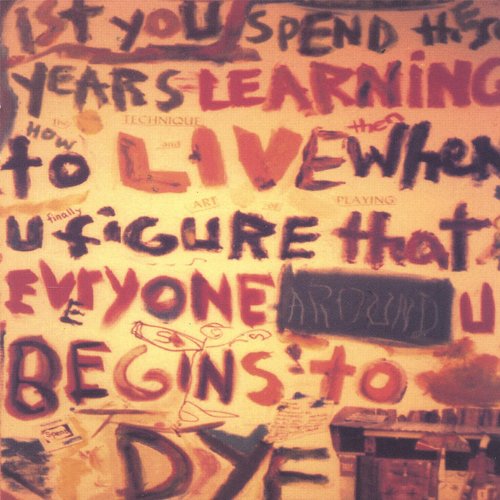 1ST YOU SPEND theSe
YEARS LEARNING
The TECHNIQUE
HOW then
to LIVE WheN
and
ART OF PLAYING
finally
U figURE that
EVERYONE AROUND U
E
BEGINS to
Spend
DYE